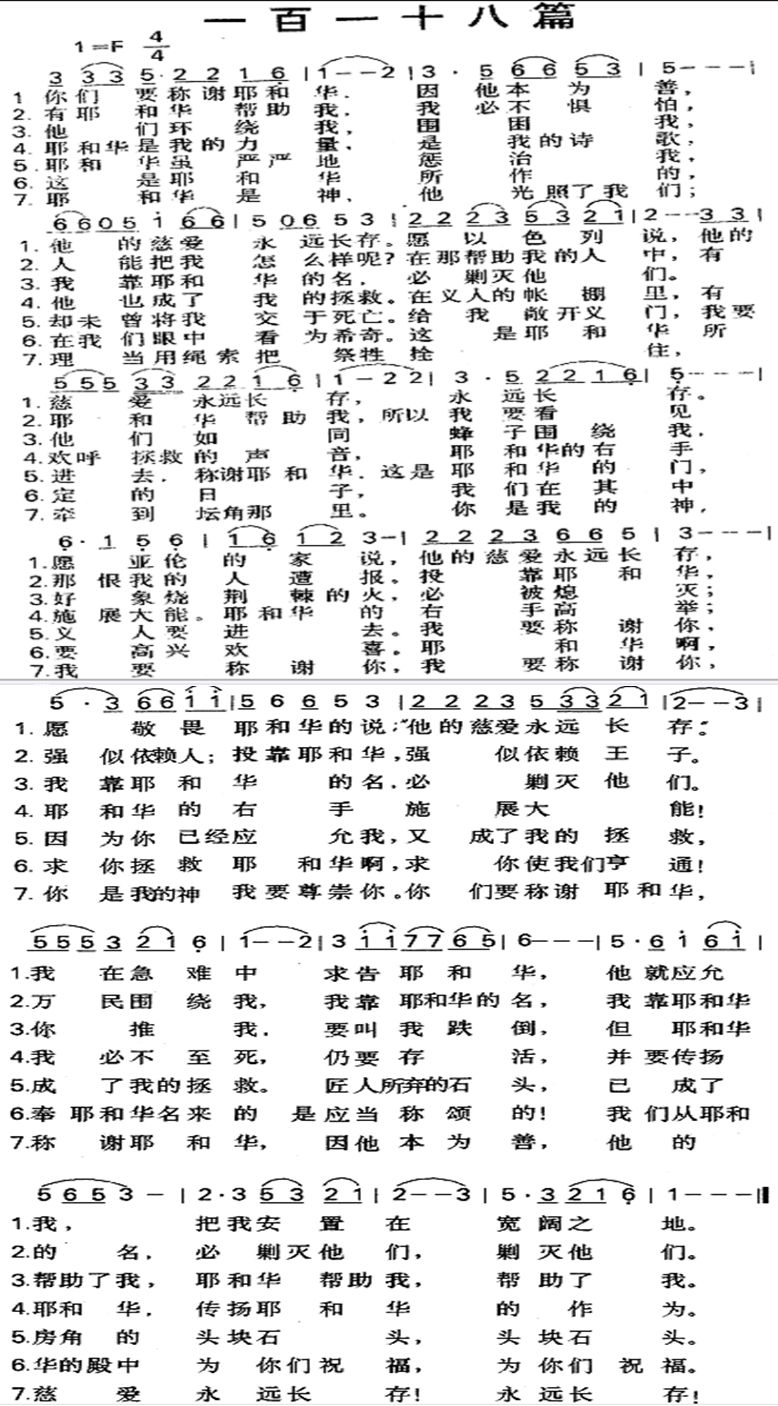 一百一十八篇
1=F 4/4
3 3 3 5· 2 2 1 6 | 1 - - 2 | 3 · 5 6 6 5 3 | 5 - - - |
1 你们 要称谢耶和 华. 因 他本 为 善,
2. 有耶 和华 帮助 我. 我 必不 惧 怕,
3. 他 们环 绕 我, 围 困 我,
4. 耶和华是我的力 量, 是 我的诗 歌,
5. 耶和 华虽 严严 地 惩 治 我,
6. 这 是耶 和 华 所 作 的,
7. 耶 和华 是 神. 他 光照了我 们;
6 6 0 5 1 6 6 | 5 0 6 5 3 | 2 2 2 3 5 3 2 1 | 2 - - 3 3 |
1. 他 的慈爱 永 远长存。愿 以 色 列 说, 他的
2. 人 能把我 怎 么样呢?在那帮助我的人 中, 有
3. 我 靠耶和 华 的名, 必 剿灭他 们。
4. 他 也成了 我 的拯救。在义人的帐 棚 里, 有
5. 却未 曾将我 交 于死亡。给 我 敞开义 门, 我要
6. 在我 们眼中 看 为希奇。这 是耶 和 华 所
7. 理 当用绳 索把 祭牲拴 住,
5 5 5 3 3 2 2 1 6 | 1 - 2 2 | 3 · 5 2 2 1 6 | 5 - - - |
1. 慈 爱 永远长 存, 永 远长 存。
2. 耶 和 华 帮助 我, 所以 我 要看 见
3. 他 们 如 同 蜂 子围 绕 我,
4. 欢呼 拯救的 声 音, 耶 和华的右 手
5. 进 去, 称谢耶 和 华. 这是 耶 和华 的 门,
6. 定 的 日 子, 我 们在 其 中
7. 牵 到 坛角那 里。 你 是我 的 神,
6· 1 5 6 | 1 6 1 2 3 - | 2 2 2 3 6 6 5 | 3 - - - |
1. 愿 亚伦 的 家 说, 他的 慈 爱 永 远长 存,
2. 那 恨我的 人 遭 报。投 靠 耶 和 华,
3. 好 象烧 荆 棘 的 火, 必 被 熄 灭;
4. 施 展大 能。耶和华 的 右 手高 举;
5. 义 人要 进 去。我 要称 谢 你,
6. 要 高兴 欢 喜。耶 和 华 啊,
7. 我 要 称 谢 你, 我 要称 谢 你,
5 · 3 6 6 1 1 | 5 6 6 5 3 | 2 2 2 3 5 3 3 2 1 | 2 - - 3 |
1. 愿 敬畏 耶和华的说;“他的慈爱永远 长 存.”
2. 强 似依赖人; 投靠耶和华,强 似依赖 王 子。
3. 我 靠耶 和 华 的 名. 必 剿灭 他 们。
4. 耶 和华的 右 手 施 展大 能!
5. 因 为你 已经应 允我, 又 成了我的 拯 救,
6. 求 你拯 救 耶 和华啊,求 你使我们 亨 通!
7. 你 是我的神 我要尊崇你。你 们要称谢 耶和华,
5 5 5 3 2 1 6 | 1 - - 2 | 3 1 1 7 7 6 5 | 6 - - - | 5 · 6 1 6 1 |
1.我 在急 难 中 求告 耶 和 华, 他 就应允
2.万 民围 绕 我, 我靠 耶和华的名, 我 靠耶和华
3.你 推 我. 要叫 我 跌 倒, 但 耶和华
4.我 必不 至 死, 仍要 存 活, 并 要传扬
5.成 了我的拯 救。 匠人所弃的石 头, 已 成了
6.奉 耶和华名来 的 是应当 称颂 的! 我 们从耶和
7.称 谢耶 和 华, 因他 本为 善, 他 的
5 6 5 3 - | 2 · 3 5 3 2 1 | 2 - - 3 | 5 · 3 2 1 6 | 1 - - - ‖
1.我, 把我安 置 在 宽 阔之 地。
2.的 名, 必 剿灭他 们, 剿 灭他 们。
3.帮助了我, 耶和华 帮助 我, 帮 助了 我。
4.耶和 华. 传扬耶 和 华 的 作 为。
5.房角 的 头块石 头, 头 块石 头。
6.华的殿中 为 你们 祝 福, 为 你们 祝 福。
7.慈 爱 永 远长 存! 永 远长 存!